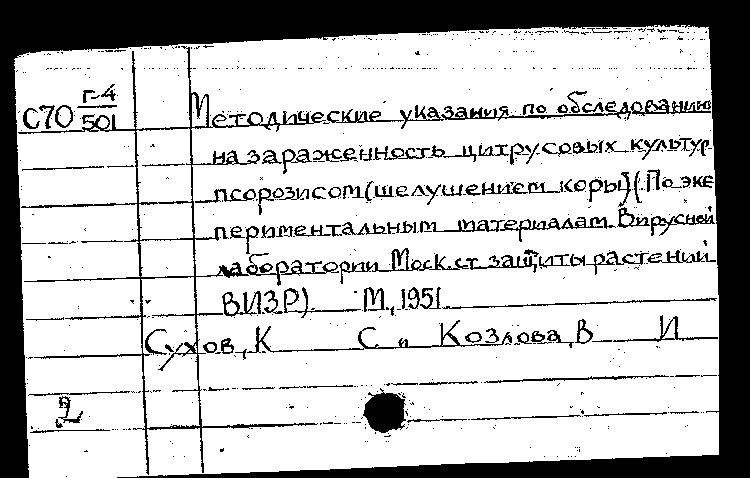 С70 Г-4/501
Методические указания по обследованию
на зараженность цитрусовых культур
псорозисом (шелушением коры) (По экс
периментальным материалам Вирусной
лаборатории Моск. ст. защиты растений
ВИЗР). М., 1951.
Сухов, К С и Козлова, В И
2